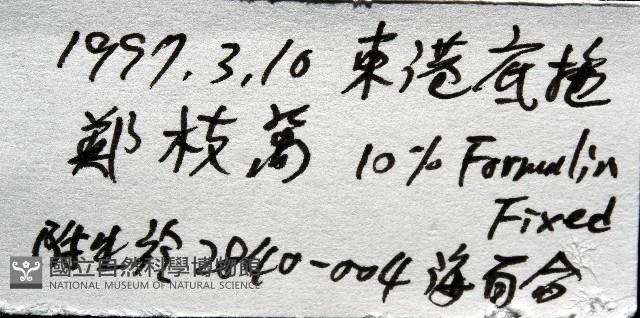 1997.3.10 東港底拖
鄭枝萬 10% Formalin
Fixed
附生於 2840-004 海百合
國立自然科學博物館
NATIONAL MUSEUM OF NATURAL SCIENCE